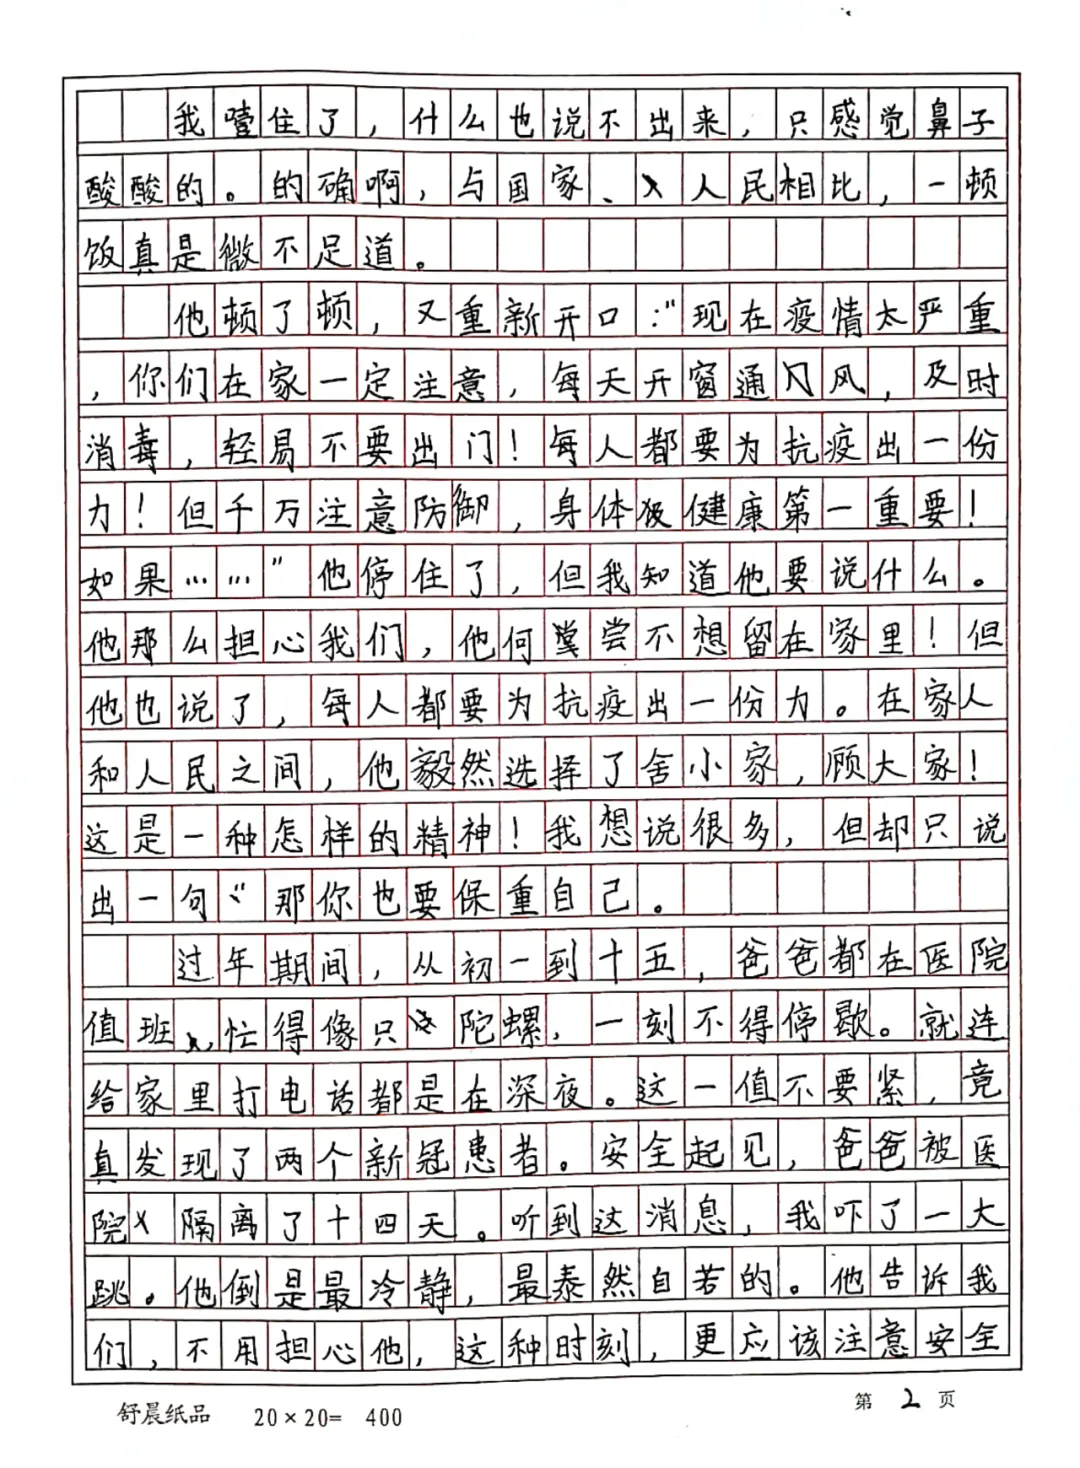 我噎住了，什么也说不出来，只感觉鼻子
酸酸的。的确啊，与国家、人民相比，一顿
饭真是微不足道。
他顿了顿，又重新开口："现在疫情太严重
，你们在家一定注意，每天开窗通风，及时
消毒，轻易不要出门！每人都要为抗疫出一份
力！但千万注意防御，身体健康第一重要！
如果……"他停住了，但我知道他要说什么。
他那么担心我们，他何尝不想留在家里！但
他也说了，每人都要为抗疫出一份力。在家人
和人民之间，他毅然选择了舍小家，顾大家！
这是一种怎样的精神！我想说很多，但却只说
出一句"那你也要保重自己。
过年期间，从初一到十五，爸爸都在医院
值班，忙得像只陀螺，一刻不得停歇。就连
给家里打电话都是在深夜。这一值不要紧，竟
真发现了两个新冠患者。安全起见，爸爸被医
院隔离了十四天。听到这消息，我吓了一大
跳。他倒是最冷静，最泰然自若的。他告诉我
们，不用担心他，这种时刻，更应该注意安全
舒晨纸品 20×20= 400 第2页